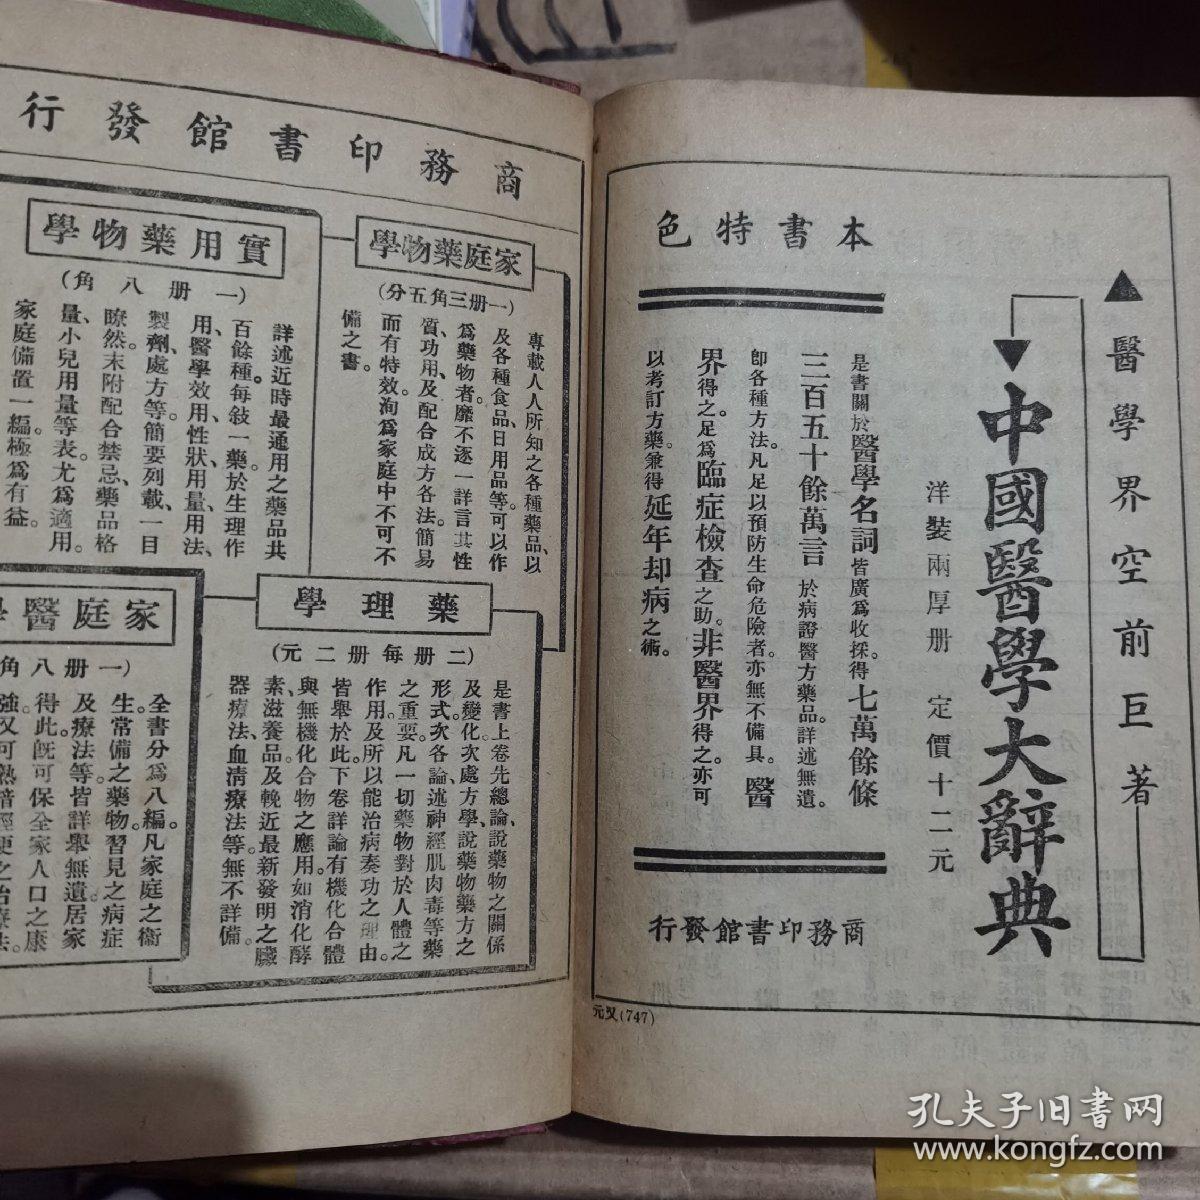 ▲醫學界空前巨著
▼中國醫學大辭典
洋裝兩厚册　定價十二元
本書特色
是書關於醫學名詞皆廣爲收採。得七萬餘條
三百五十餘萬言於病證醫方藥品。詳述無遺。
卽各種方法。凡足以預防生命危險者。亦無不備具。醫
界得之。足爲臨症檢查之助。非醫界得之。亦可
以考訂方藥。兼得延年却病之術。
商務印書館發行
元㕛(747)
商務印書館發行
家庭藥物學
(一册三角五分)
專載人人所知之各種藥品、以
及各種食品、日用品等、可以作
爲藥物者。靡不逐一詳言其性
質、功用、及配合成方各法。簡易
而有特效。洵爲家庭中不可不
備之書。
實用藥物學
(一册八角)
詳述近時最通用之藥品共
百餘種。每敍一藥。於生理作
用、醫學效用、性狀、用量、用法、
製劑、處方等。簡要列載。一目
瞭然。末附配合禁忌、藥品格
量、小兒用量等表。尤爲適用。
家庭備置一編。極爲有益。
藥理學
(二册每册二元)
是書上卷先總論、說藥物之關係
及變化。次處方學、說藥物藥方之
形式。次各論、述神經肌肉毒等藥
之重要。凡一切藥物對於人體之
作用。及所以能治病奏功之理由。
皆舉於此。下卷詳論有機化合體
與無機化合物之應用。如消化酵
素、滋養品、及輓近最新發明之臟
器療法、血清療法等。無不詳備。
家庭醫學
(一册八角
全書分爲八編。凡家庭之衞
生。常備之藥物。習見之病症
及療法等。皆詳舉無遺。居家
得此。旣可保全家人口之康
強。又可熟諳輕便之治療法。
孔夫子旧书网
www.kongfz.com